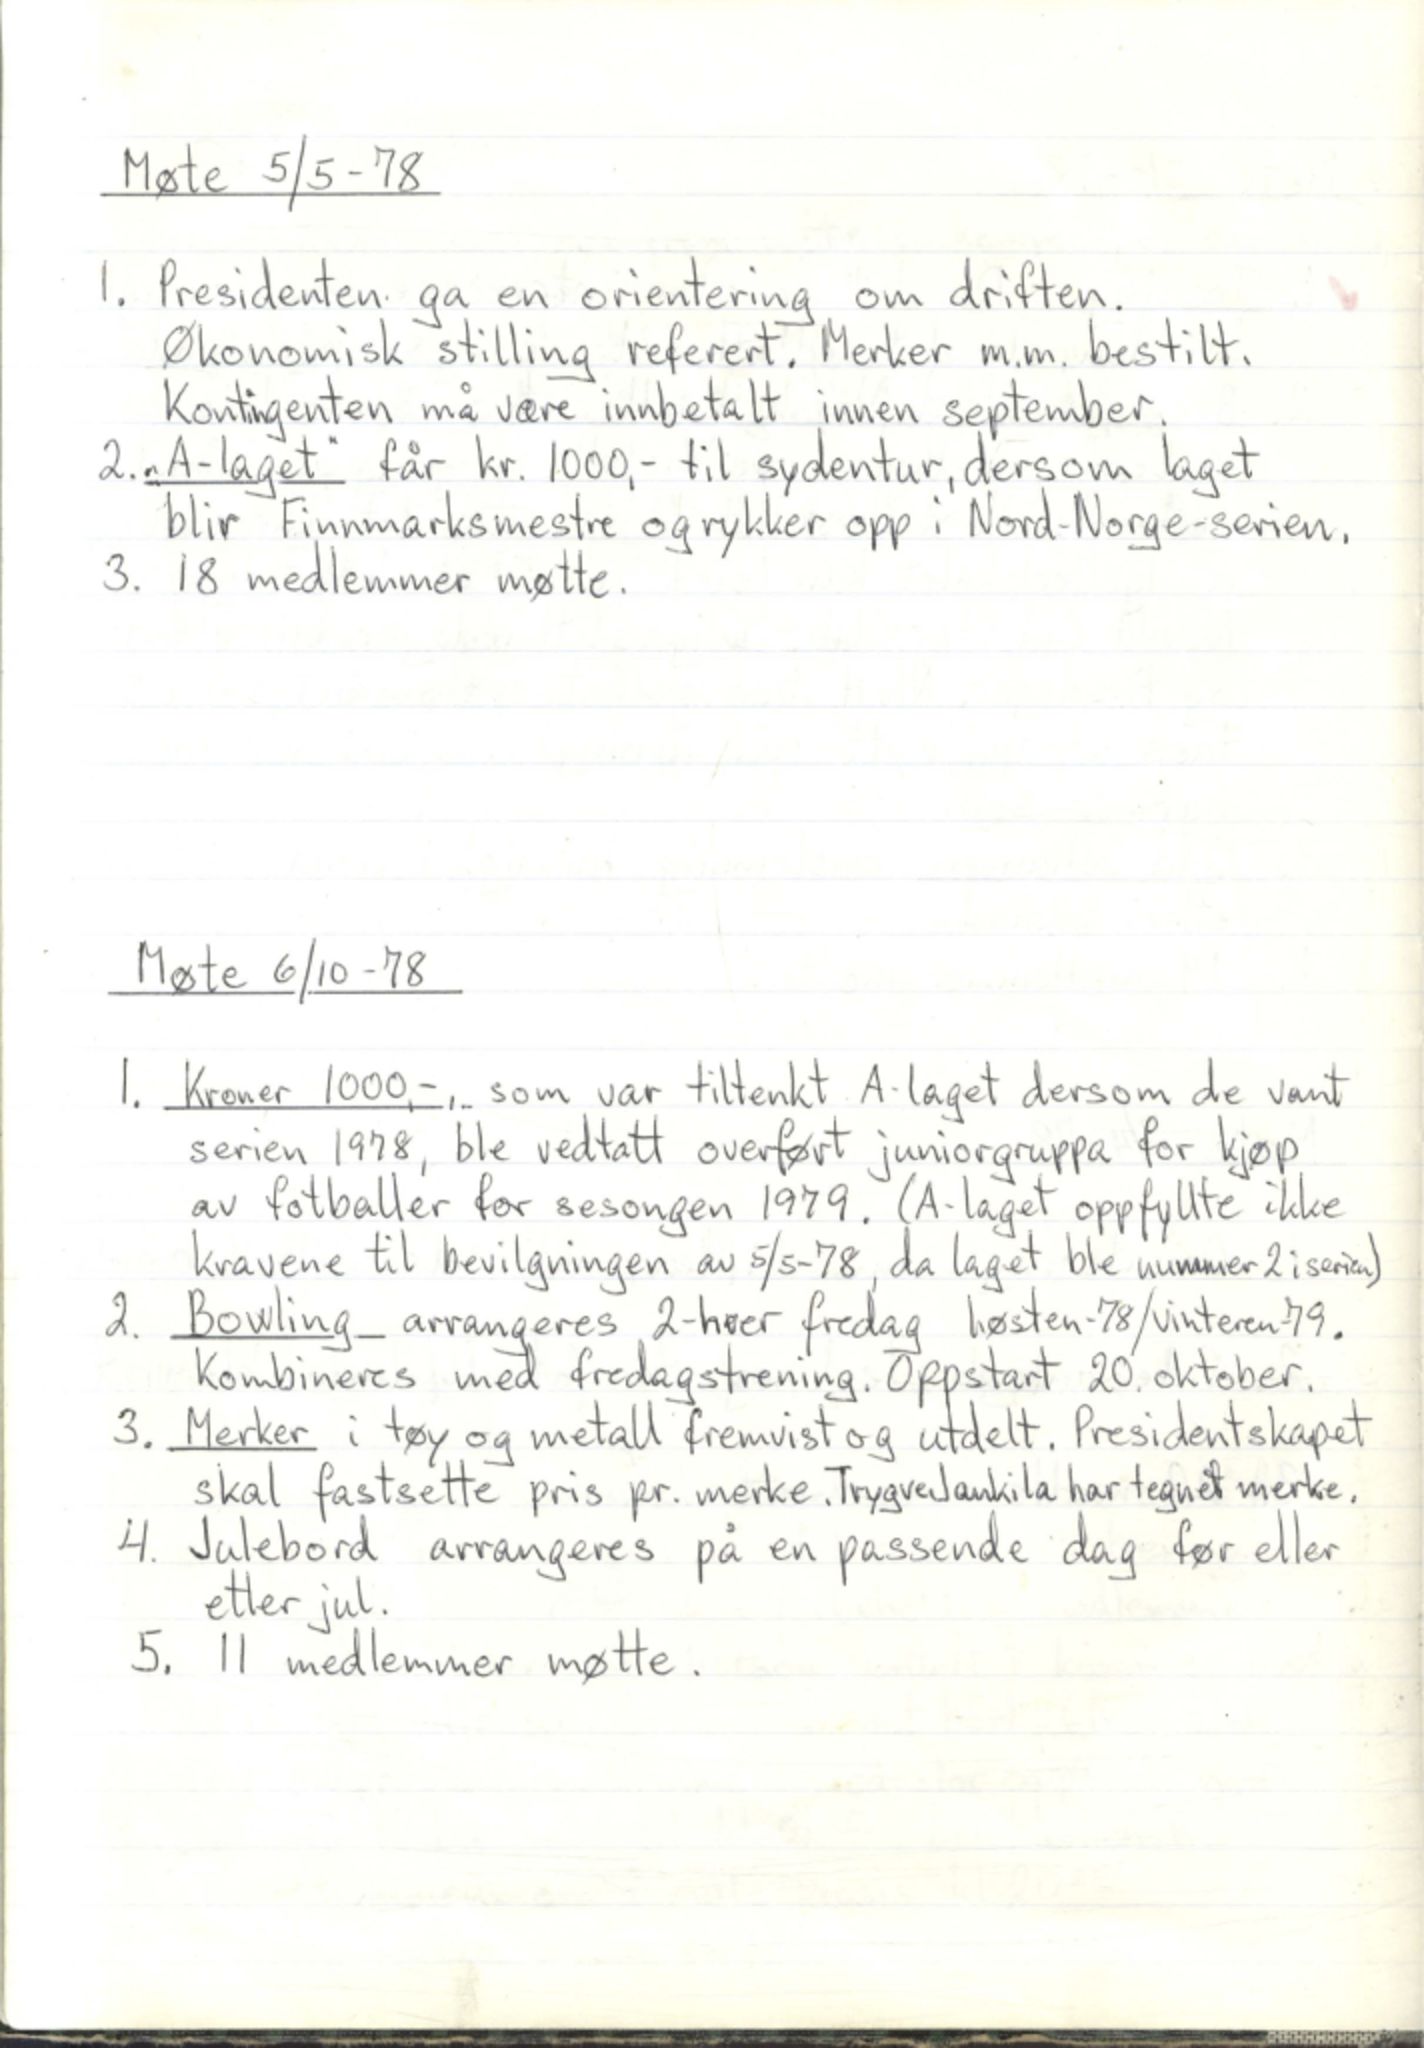 Møte 5/5-78
1. Presidenten ga en orientering om driften.
Økonomisk stilling referert. Merker m.m. bestilt.
Kontingenten må være innbetalt innen september.
2. „A-laget" får kr. 1000,- til sydentur, dersom laget
blir Finnmarksmestre og rykker opp i Nord-Norge-serien.
3. 18 medlemmer møtte.
Møte 6/10-78
1. Kroner 1000,-, som var tiltenkt A-laget dersom de vant
serien 1978, ble vedtatt overført juniorgruppa for kjøp
av fotballer for sesongen 1979. (A-laget oppfyllte ikke
kravene til bevilgningen av 5/5-78, da laget ble nummer 2 i serien)
2. Bowling arrangeres 2-hver fredag høsten-78/vinteren-79.
Kombineres med fredagstrening. Oppstart 20. oktober.
3. Merker i tøy og metall fremvist og utdelt. Presidentskapet
skal fastsette pris pr. merke. Trygve Jankila har tegnet merke.
4. Julebord arrangeres på en passende dag før eller
etter jul.
5. 11 medlemmer møtte.